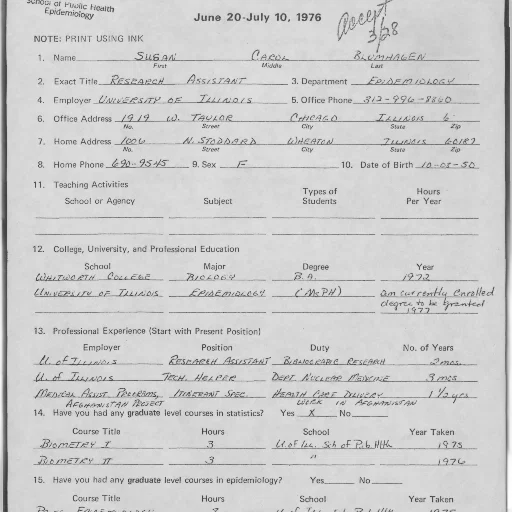 School of Public Health
Epidemiology
June 20-July 10, 1976
Accept
3/28
NOTE: PRINT USING INK
1. Name SUSAN CAROL BLUMHAGEN
First Middle Last
2. Exact Title RESEARCH ASSISTANT 3. Department EPIDEMIOLOGY
4. Employer UNIVERSITY OF ILLINOIS 5. Office Phone 312-996-8860
6. Office Address 1919 W. TAYLOR CHICAGO ILLINOIS 6
No. Street City State Zip
7. Home Address 1006 N. STODDARD WHEATON ILLINOIS 60187
No. Street City State Zip
8. Home Phone 690-9545 9. Sex F 10. Date of Birth 10-05-50
11. Teaching Activities
School or Agency Subject Types of Students Hours Per Year
12. College, University, and Professional Education
School Major Degree Year
WHITWORTH COLLEGE BIOLOGY B.A. 1972
UNIVERSITY OF ILLINOIS EPIDEMIOLOGY (MPH) am currently enrolled
degree to be granted
1977
13. Professional Experience (Start with Present Position)
Employer Position Duty No. of Years
U. of ILLINOIS RESEARCH ASSISTANT BIBLIOGRAPHIC RESEARCH 2 mos.
U. of ILLINOIS TECH. HELPER DEPT. NUCLEAR MEDICINE 3 mos
MEDICAL ASSIST. PROGRAMS, ITINERANT SPEC. HEALTH CARE DELIVERY 1 1/2 yrs
AFGHANISTAN PROJECT WORK IN AFGHANISTAN
14. Have you had any graduate level courses in statistics? Yes X No
Course Title Hours School Year Taken
BIOMETRY I 3 U. of Ill. Sch of Pub Hlth 1975
BIOMETRY II 3 " 1976
15. Have you had any graduate level courses in epidemiology? Yes No
Course Title Hours School Year Taken